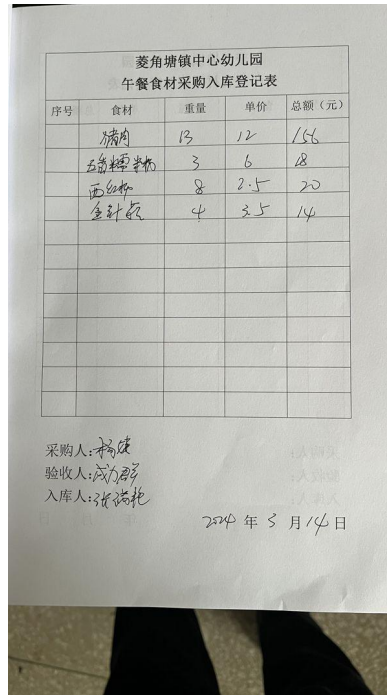 菱角塘镇中心幼儿园
午餐食材采购入库登记表
序号 食材 重量 单价 总额（元）
猪肉 13 12 156
五香糯米粉 3 6 18
西红柿 8 2.5 20
金针菇 4 3.5 14
采购人:
验收人:
入库人:
2024 年 5 月 14 日